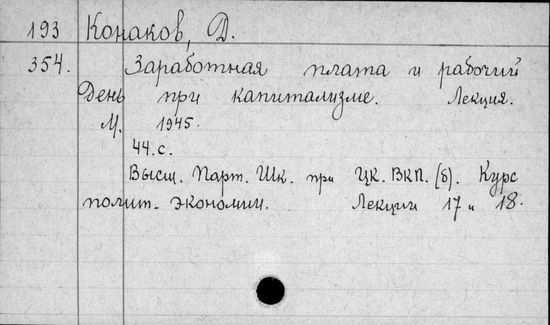 193 Конаков, Д.
354. Заработная плата и рабочий
День при капитализме. Лекция.
М. 1945.
44.с.
Высш. Парт. Шк. при ЦК. ВКП. (б). Курс
полит. экономии. Лекции 17 и 18.